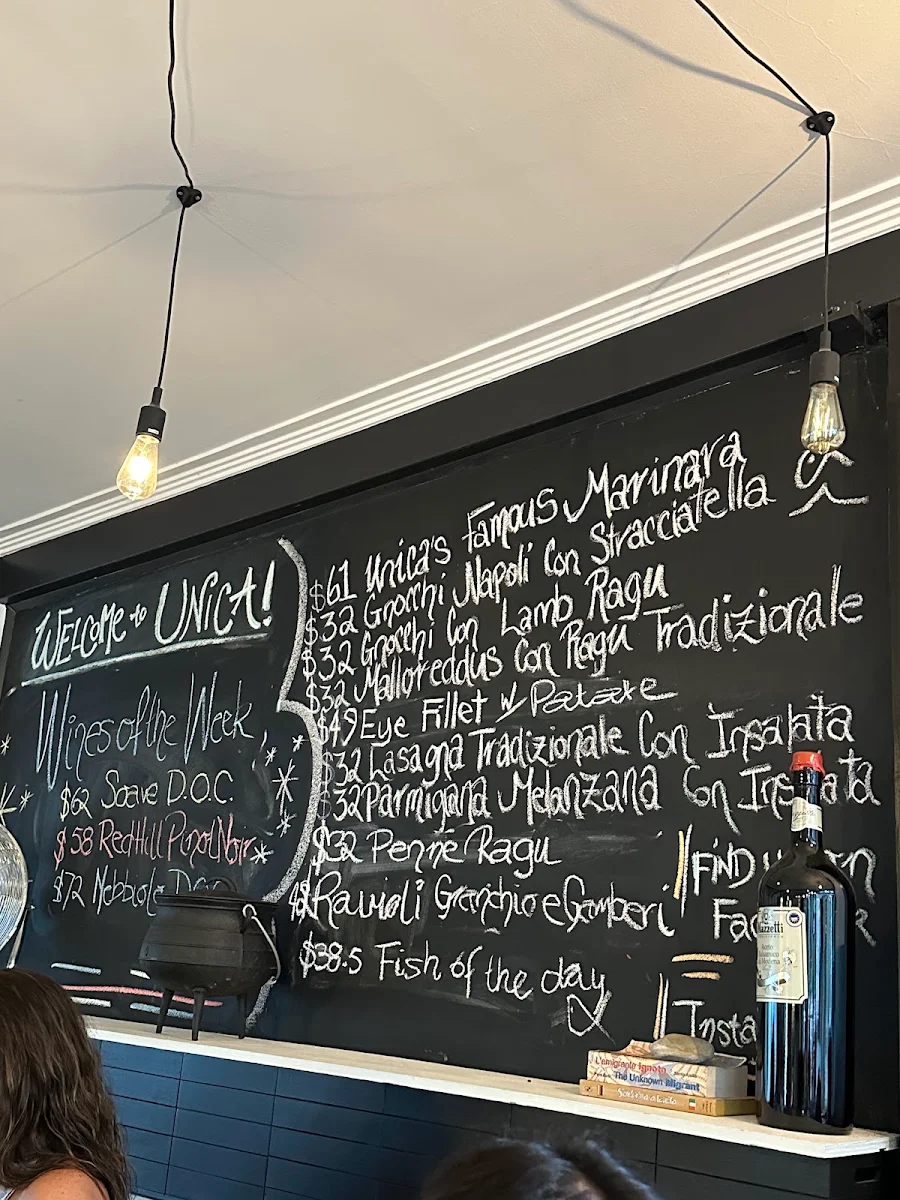 WELCOMe to UNiCA!
Wines of the Week
$62 Soave D.O.C.
$58 Red Hill Pinot Noir
$72 Nebbiolo
$61 Unica's Famous Marinara
$32 Gnocchi Napoli Con Stracciatella
$32 Gnocchi Con Lamb Ragu
$32 Malloreddus Con Ragu Tradizionale
$49 Eye Fillet w/ Patate
$32 Lasagna Tradizionale Con Insalata
$32 Parmigana Melanzana Con
$32 Penne Ragu
Ravioli Granchio e Gamberi
$38.5 Fish of the day
FiND
Insta
L'emigrante Ignoto
The Unknown Migrant